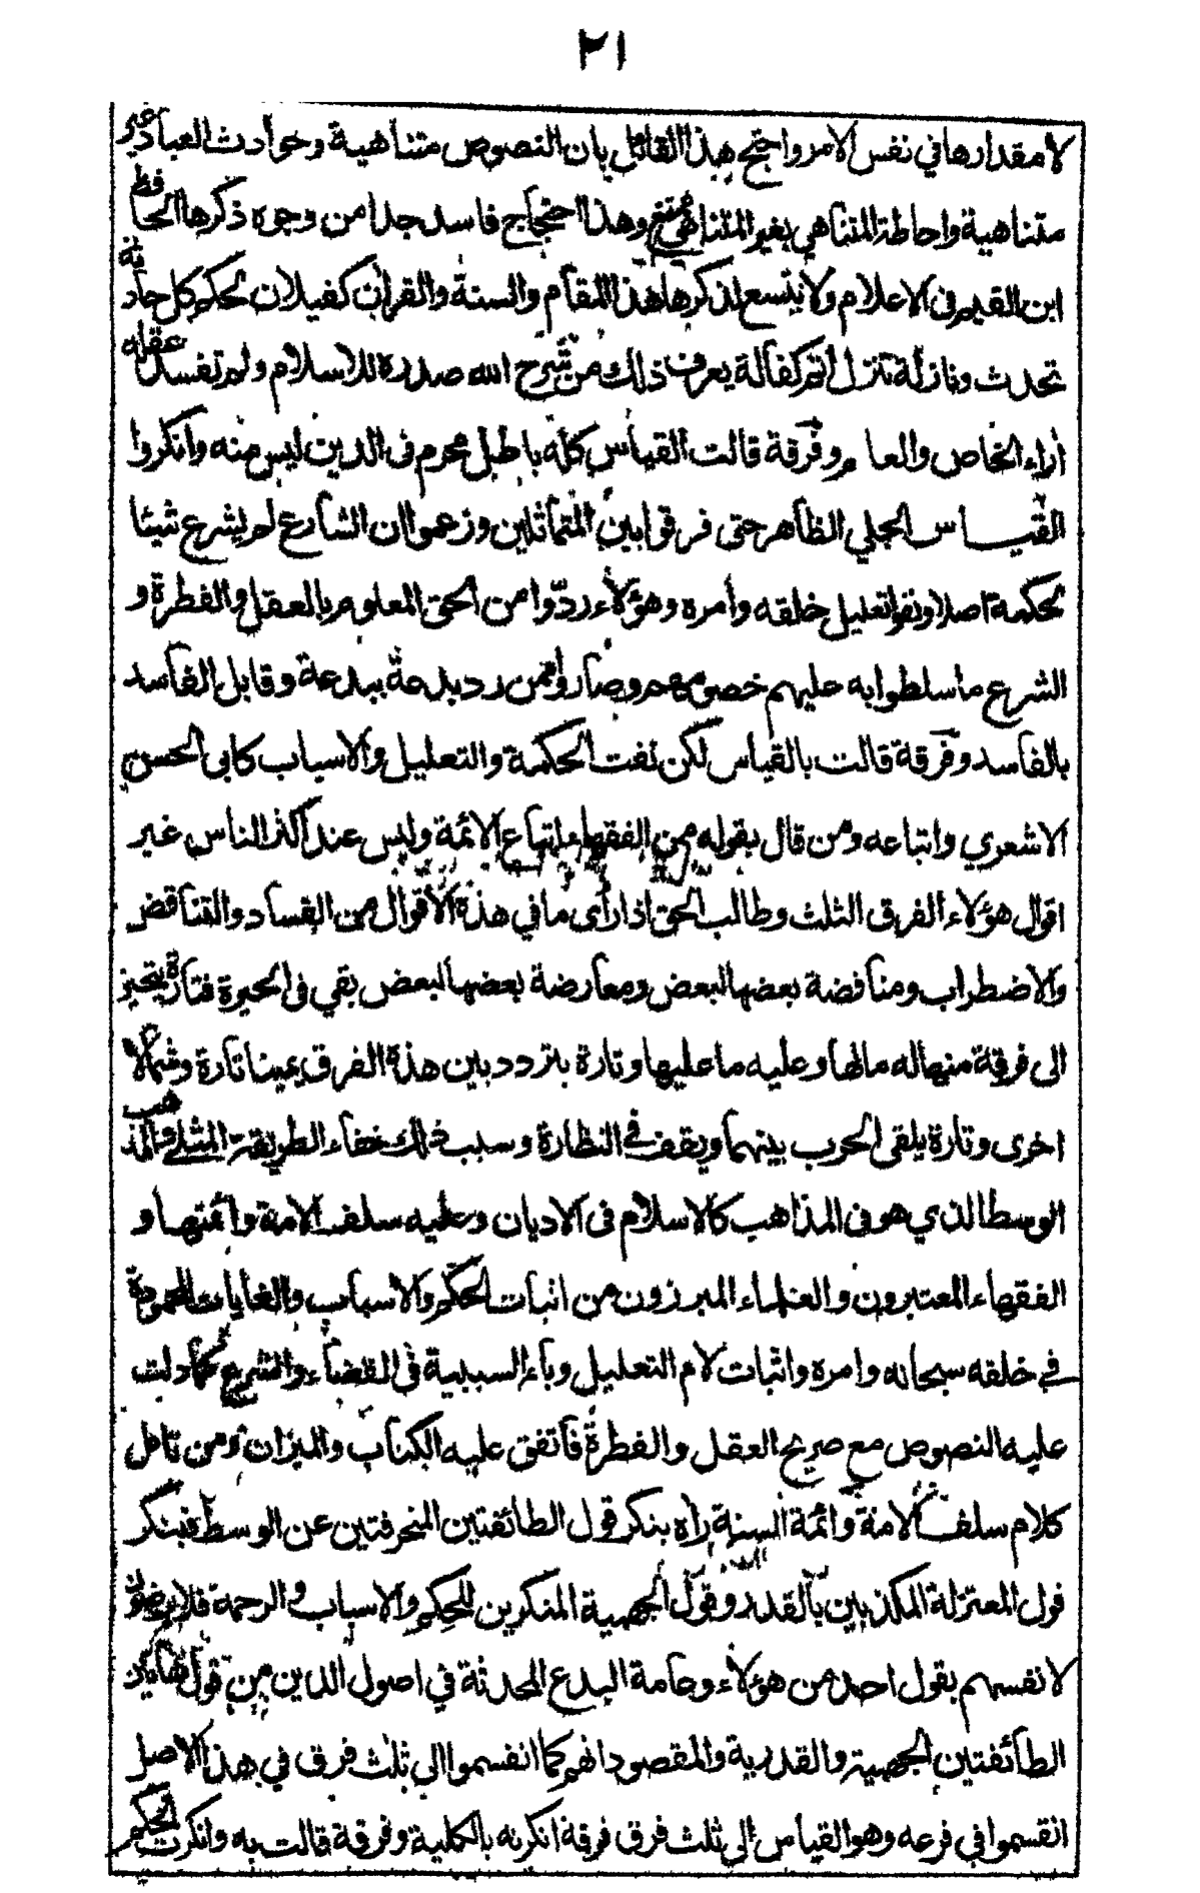 ٢١
لا مقدارها في نفس الامر واحتج هذا القائل بان النصوص متناهية وحوادث العباد غير
متناهية واحاطة المتناهي بغير المتناهي ممتنع وهذا احتجاج فاسد جدا من وجوه ذكرها الحافظ
ابن القيم في الاعلام ولا يتسع لذكرها هذا المقام والسنة والقرآن كفيلان بحكم كل حادثة
تحدث ونازلة تنزل اتم كفالة يعرف ذلك من شرح الله صدره للاسلام ولم تفسد عقله
أراء الخاص والعام وفرقة قالت القياس كله باطل محرم في الدين ليس منه وانكروا
القياس الجلي الظاهر حتى فرقوا بين المتماثلين وزعموا ان الشارع لم يشرع شيئا
لحكمة اصلا ونفوا تعليل خلقه وأمره وهؤلاء ردّوا من الحق المعلوم بالعقل والفطرة و
الشرع ما سلطوا به عليهم خصومهم وصاروا ممن رد بدعة ببدعة وقابل الفاسد
بالفاسد وفرقة قالت بالقياس لكن نفت الحكمة والتعليل والاسباب كابى الحسن
الاشعري واتباعه ومن قال بقوله من الفقهاء اتباع الائمة وليس عند اكثر الناس غير
اقوال هؤلاء الفرق الثلث وطالب الحق اذا رأى ما في هذه الأقوال من الفساد والتناقض
والاضطراب ومناقضة بعضها لبعض ومعارضة بعضها لبعض بقي في الحيرة فتارة يتحيز
الى فرقة منها له ما لها وعليه ما عليها وتارة يتردد بين هذه الفرق يمينا تارة وشمالا
اخرى وتارة يلقى الحرب بينهما ويقف في النظارة وسبب ذلك خفاء الطريقة المثلى والمذهب
الوسط الذي هو في المذاهب كالاسلام في الاديان وعليه سلف الامة وأئمتها و
الفقهاء المعتبرون والعلماء المبرزون من اثبات الحكم والاسباب والغايات المحمودة
في خلقه سبحانه وامره واثبات لام التعليل وباء السببية في القضاء والشرع كما دلت
عليه النصوص مع صريح العقل والفطرة فاتفق عليه الكتاب والميزان ومن تامل
كلام سلف الامة وائمة السنة رأه ينكر قول الطائفتين المنحرفتين عن الوسط فينكر
قول المعتزلة المكذبين بالقدر وقول الجهمية المنكرين للحكم والاسباب والرحمة فلا يرضون
لانفسهم بقول احد من هؤلاء وعامة البدع المحدثة في اصول الدين من قول هاتين
الطائفتين الجهمية والقدرية والمقصود انهم كما انقسموا الى ثلث فرق في هذا الاصل
انقسموا في فرعه وهو القياس الى ثلث فرق فرقة انكرته بالكلية وفرقة قالت به وانكرت الحكم